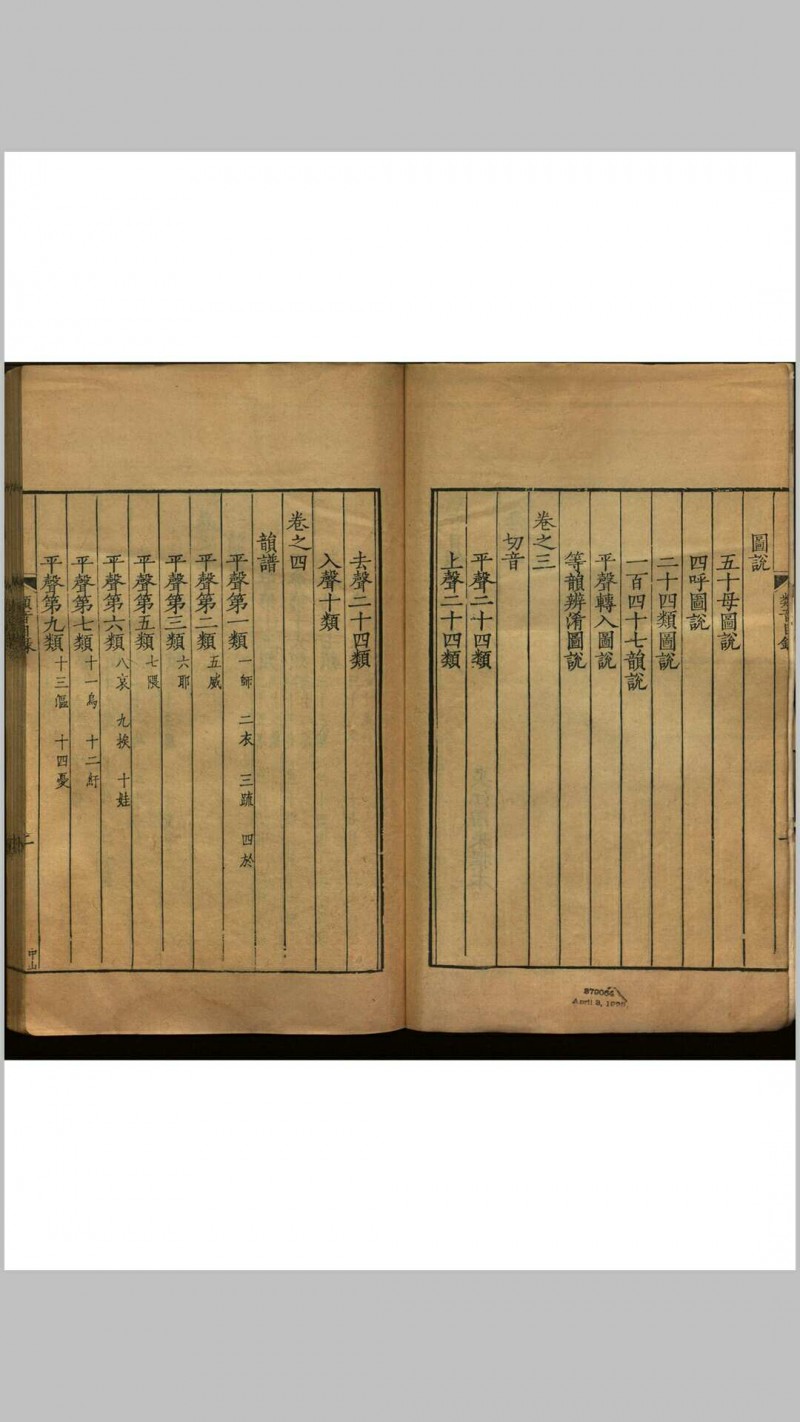 圖說
五十母圖說
四呼圖說
二十四類圖說
一百四十七韻說
平聲轉入圖說
等韻辨淆圖說
卷之三
切音
平聲二十四類
上聲二十四類
去聲二十四類
入聲十類
卷之四
韻譜
平聲第一類 一師 二衣 三疏 四於
平聲第二類 五威
平聲第三類 六耶
平聲第五類 七隈
平聲第六類 八哀 九挨 十娃
平聲第七類 十一烏 十二紆
平聲第九類 十三漚 十四憂
二